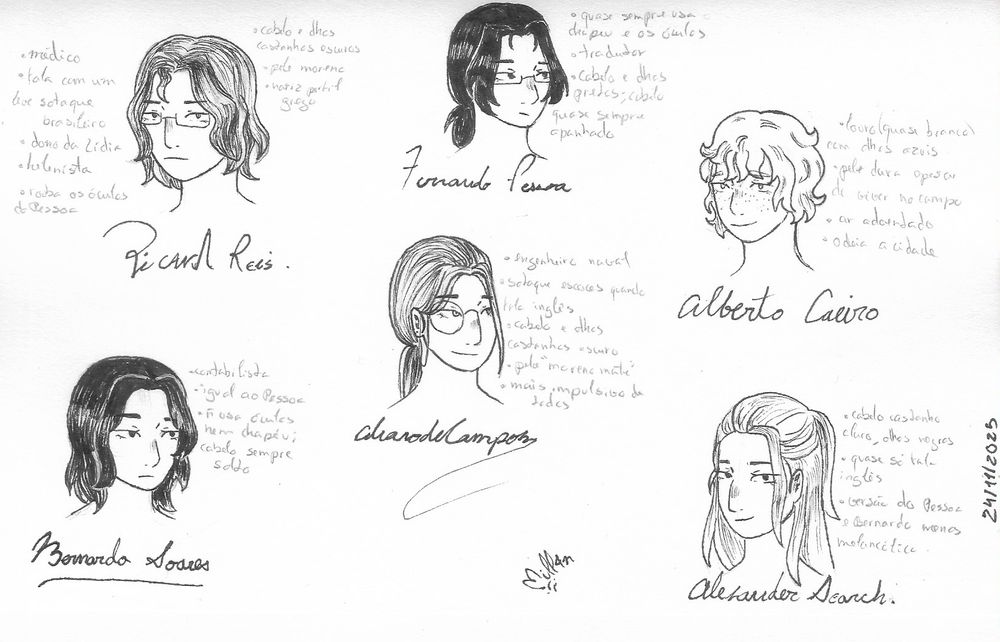 • médico
• fala com um
leve sotaque
brasileiro
• dono da Lídia
• helenista
• rouba os óculos
do Pessoa
• cabelo e olhos
castanhos escuros
• pele morena
• nariz perfil
grego
Ricardo Reis.
• quase sempre usa o
chapéu e os óculos
• tradutor
• cabelo e olhos
pretos; cabelo
quase sempre
apanhado
Fernando Pessoa
• louro (quase branco)
com olhos azuis
• pele clara apesar
de viver no campo
• ar adoentado
• odeia a cidade
Alberto Caeiro
• engenheiro naval
• sotaque escocês quando
fala inglês
• cabelo e olhos
castanhos escuro
• pele "morena mate"
• mais impulsivo de
todos
Alvaro de Campos
• contabilista
• igual ao Pessoa
• ñ usa óculos
nem chapéu;
cabelo sempre
solto
Bernardo Soares
• cabelo castanho
claro, olhos negros
• quase só fala
inglês
• versão do Pessoa
e Bernardo menos
melancólica.
Alexander Search.
24/11/2025